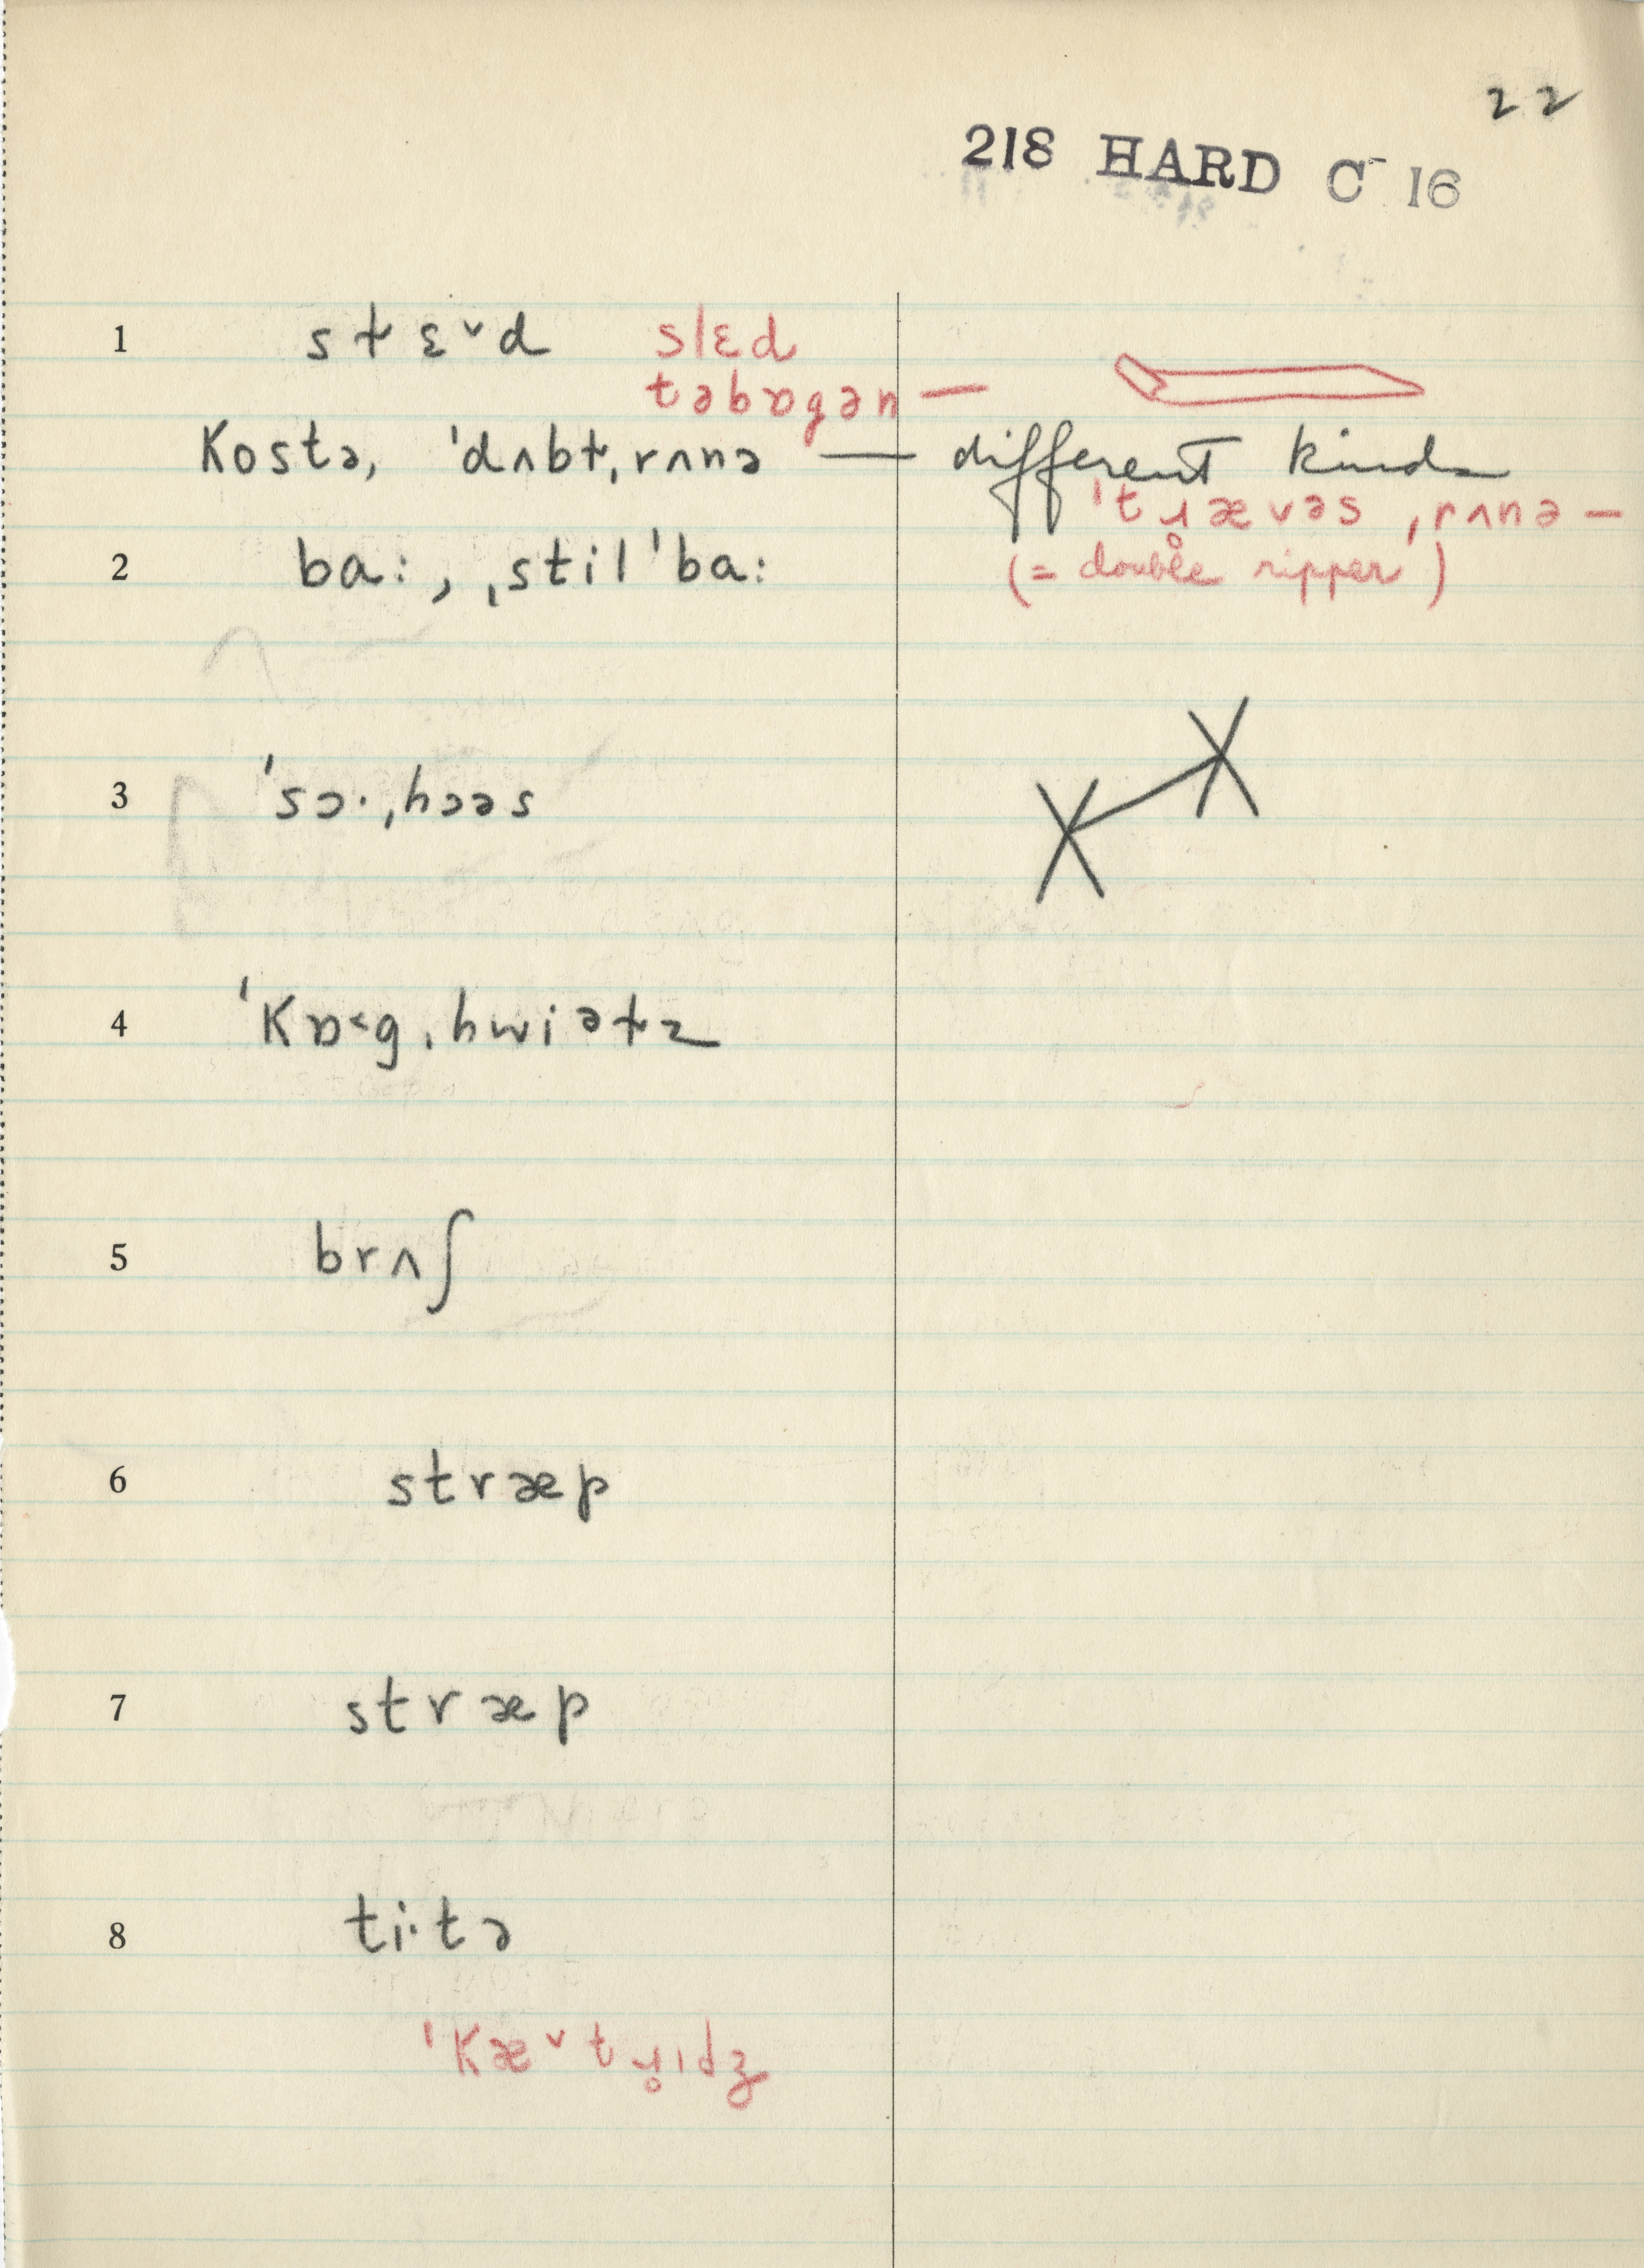 22
218 HARD C- 16
1 sɫɛ˅d slɛd
təbɒgən —
kostə, ˈdʌbɫˌrʌnə — different kinds
ˈtɹ̥ævəsˌrʌnə —
2 ba:, ˌstilˈba: (= double ripper)
3 ˈsɔ·ˌhɔəs
4 ˈkɒ˂gˌhwiəɫz
5 brʌʃ
6 stræp
7 stræp
8 ti·tə
ˈkæ˅tɹ̥ɪdʒ